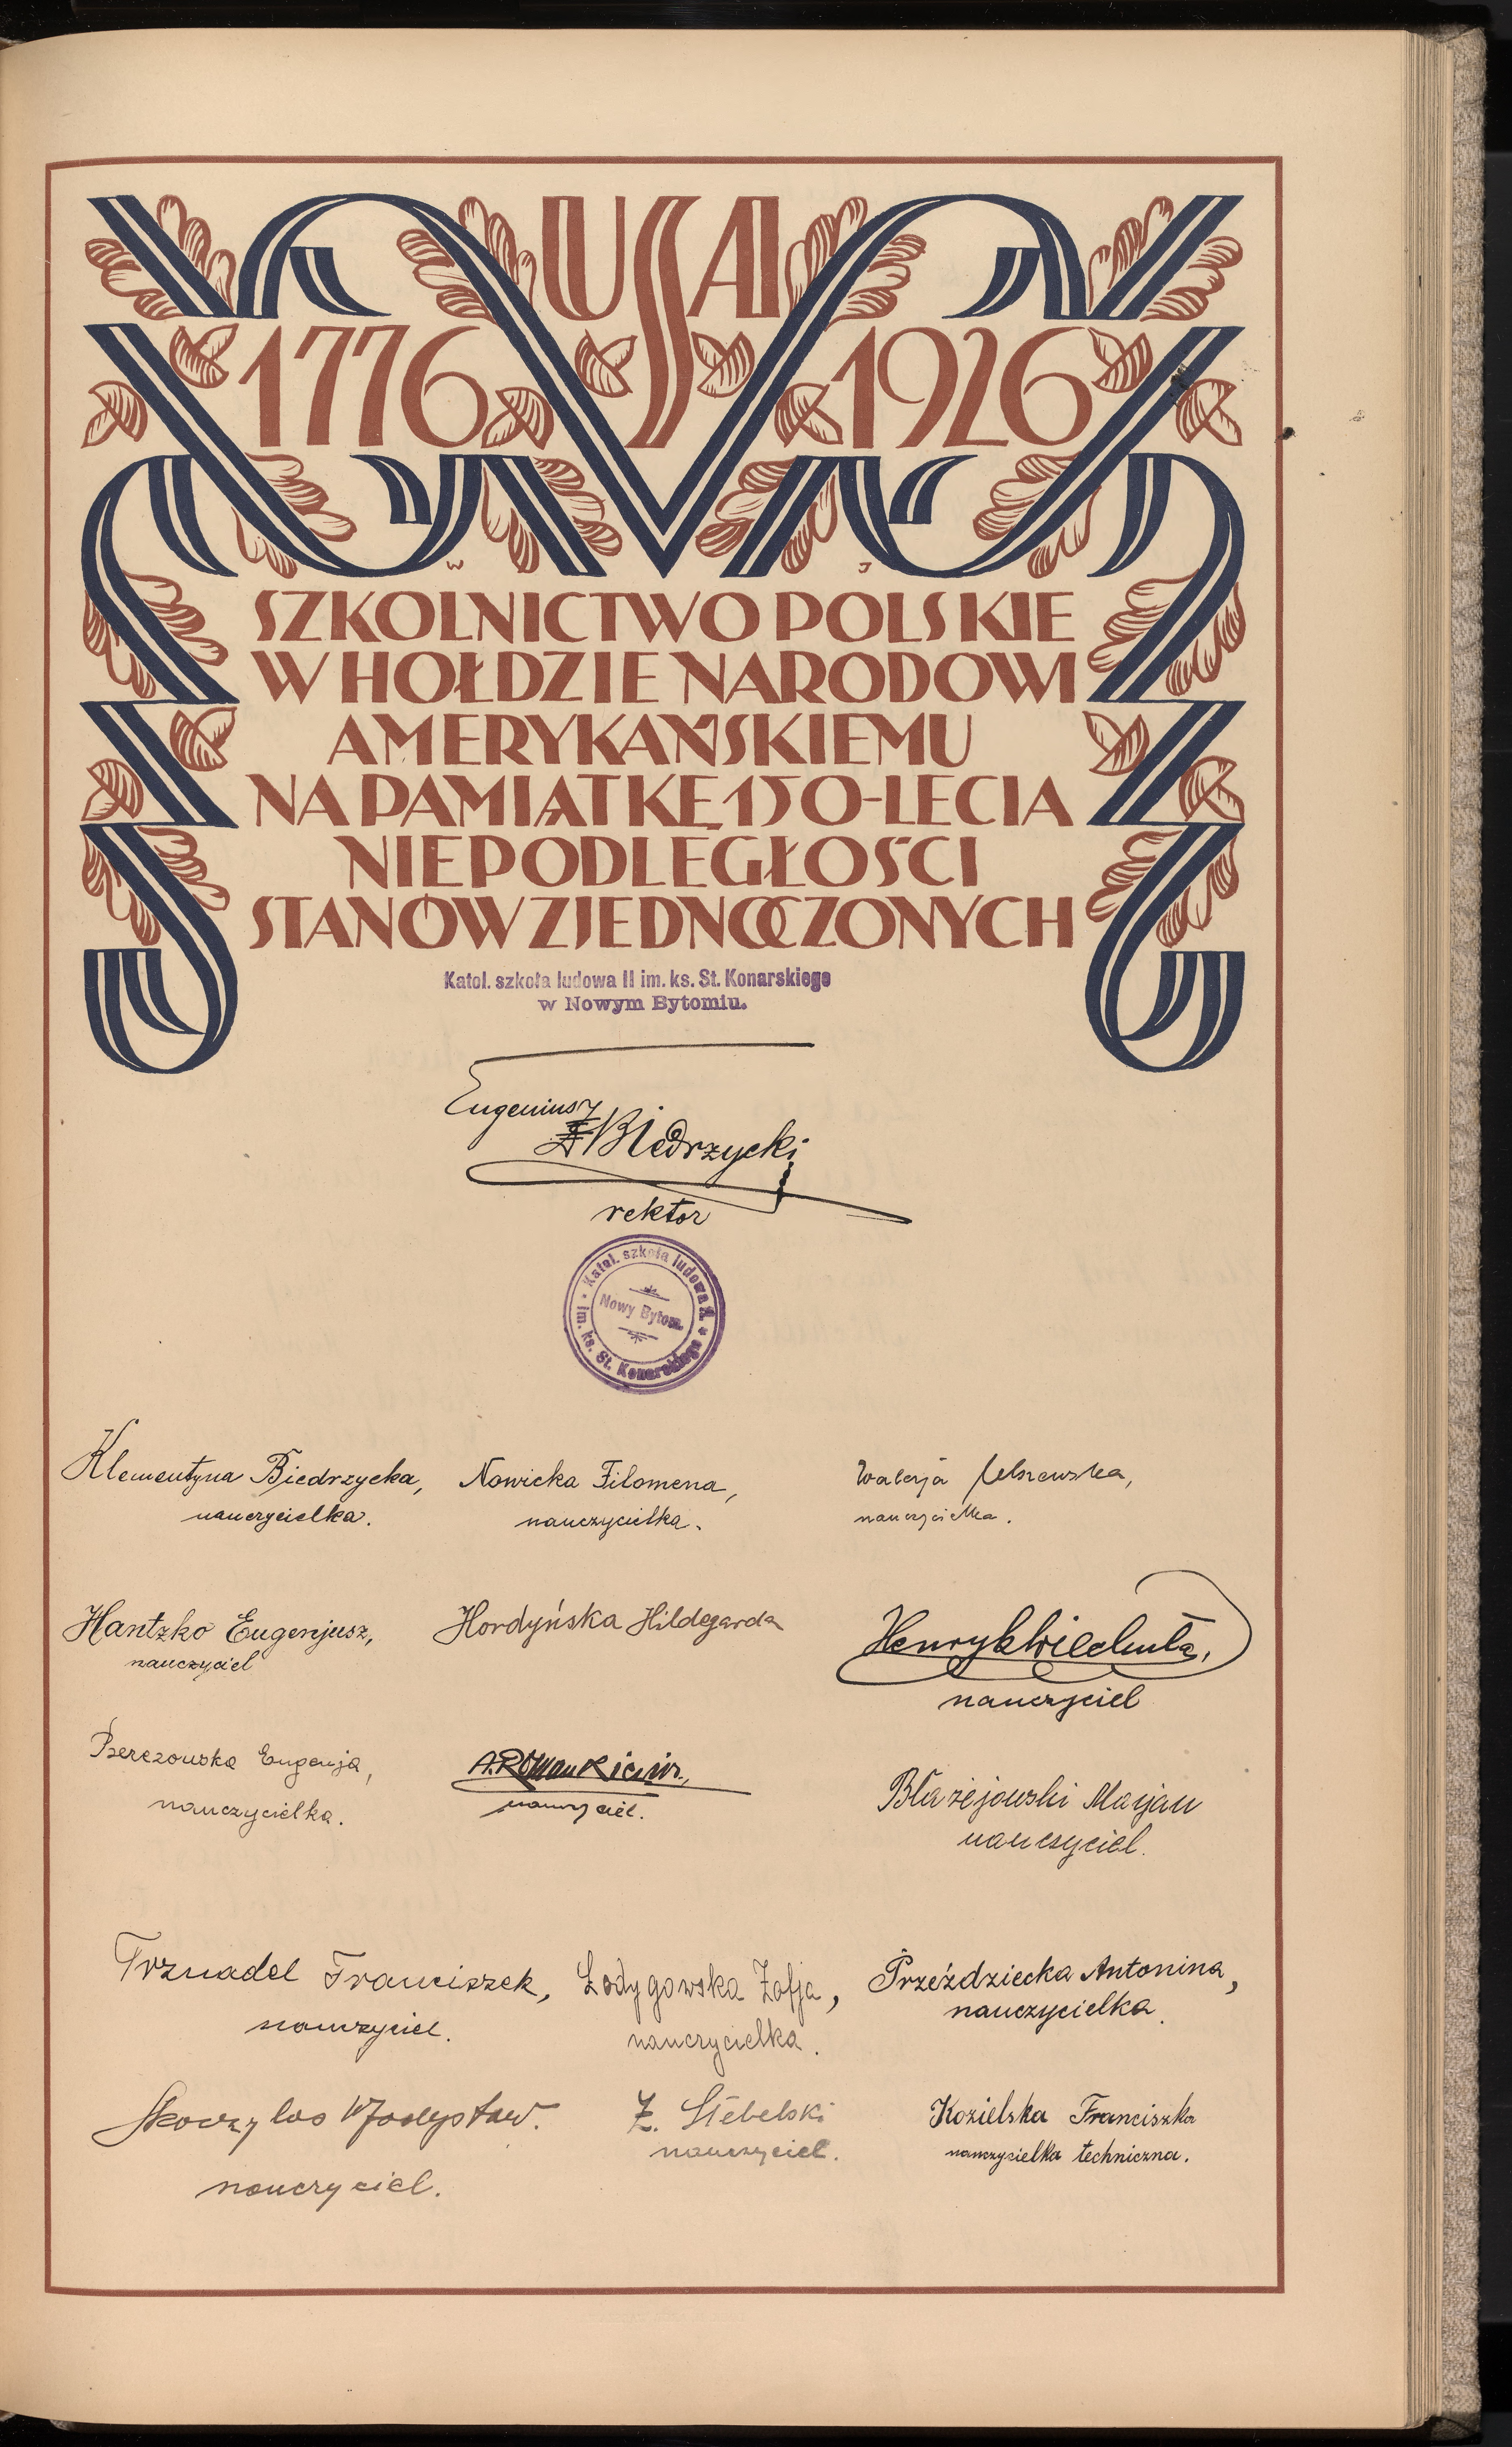 USA
1776 1926
W J
SZKOLNICTWO POLSKIE
W HOŁDZIE NARODOWI
AMERYKAŃSKIEMU
NA PAMIĄTKĘ 150-LECIA
NIEPODLEGŁOŚCI
STANÓW ZJEDNOCZONYCH
Katol. szkoła ludowa II im. ks. St. Konarskiego
w Nowym Bytomiu.
Eugeniusz
Biedrzycki
rektor
Katol. szkoła ludowa II. * im. ks. St. Konarskiego
Nowy Bytom
Klementyna Biedrzycka, Nowicka Filomena, Walerja
nauczycielka. nauczycielka. nauczycielka.
Hantzko Eugenjusz, Hordyńska Hildegarda Henryk
nauczyciel nauczyciel
Berezowska Eugenja, A. Romankiewicz.
nauczycielka. nauczyciel.
Błażejowski Marjan
nauczyciel.
Trznadel Franciszek, Łodygowska Zofja, Przeździecka Antonina,
nauczyciel. nauczycielka. nauczycielka.
Skoczylas Władysław. Z. Stebelski Kozielska Franciszka
nauczyciel. nauczyciel. nauczycielka techniczna.